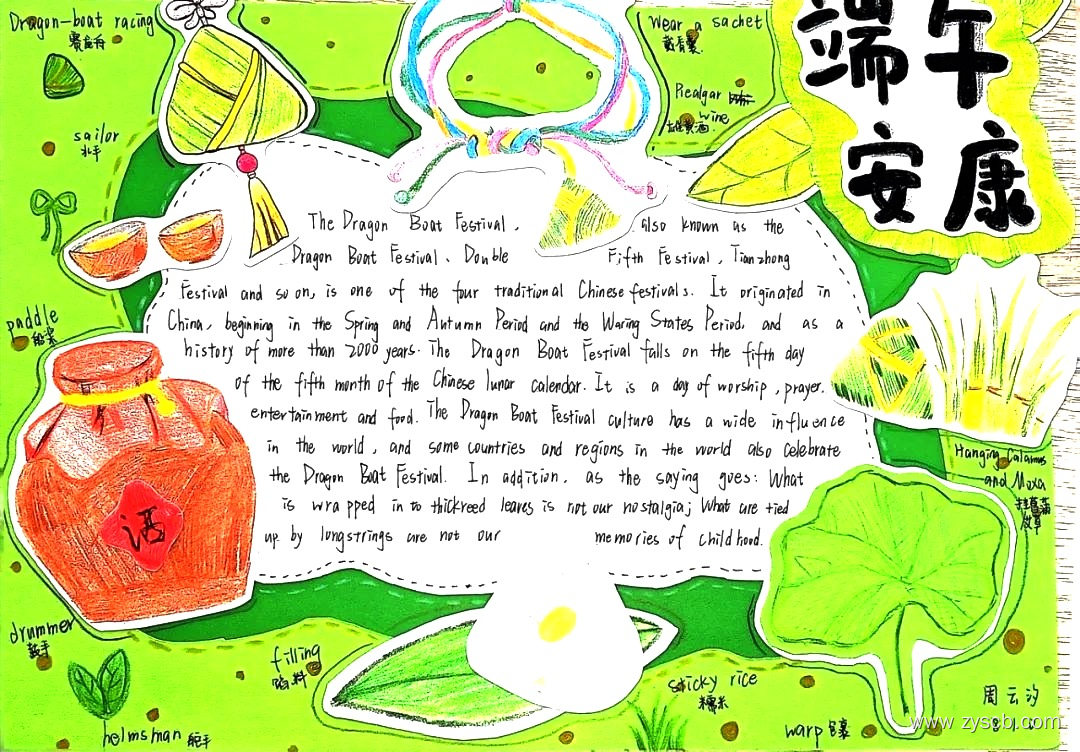 Dragon-boat racing
赛龙舟
sailor
水手
paddle
船桨
酒
drummer
鼓手
helmsman 舵手
filling
馅料
sticky rice
糯米
warp 包裹
Wear a sachet
戴香囊
Realgar
wine
雄黄酒
端午
安康
Hanging Calamus
and Moxa
挂菖蒲
艾草
The Dragon Boat Festival, also known as the
Dragon Boat Festival、Double Fifth Festival, Tianzhong
Festival and so on, is one of the four traditional Chinese festivals. It originated in
China, beginning in the Spring and Autumn Period and the Waring States Period, and as a
history of more than 2000 years. The Dragon Boat Festival falls on the fifth day
of the fifth month of the Chinese lunar calendar. It is a day of worship, prayer.
entertainment and food. The Dragon Boat Festival culture has a wide influence
in the world, and some countries and regions in the world also celebrate
the Dragon Boat Festival. In addition, as the saying goes: What
is wrapped in to thickreed leares is not our nostalgia; What are tied
up by longstrings are not our memories of childhood.
周云汐
www.zyscb.com